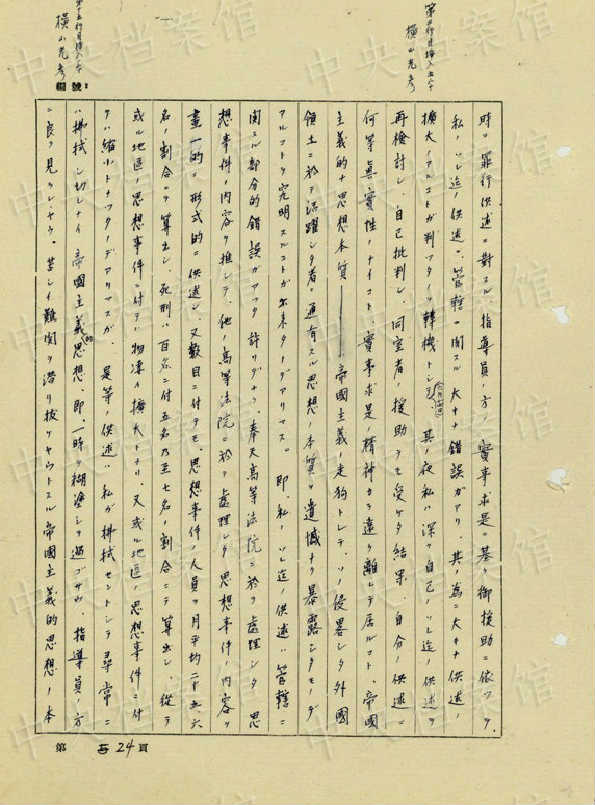 第五行目挿入六八十
横山光彦
時ノ罪行供述ニ対スル、指導員ノ方ノ實事求是ニ基ク御援助ニ依ッテ、
私ノソレ迄ノ供述ニ、管轄ニ関スル大キナ錯誤ガアリ、其ノ為ニ大キナ供述ノ
擴大ノアルコトガ判ッタノヲ轉機トシテ、其ノ夜私ハ深ク自己ノソレ迄ノ供述ヲ
再檢討シ、自己批判シ、同室者ノ援助ヲモ受ケタ結果、自分ノ供述ニ
何等眞實性ノナイコト、實事求是ノ精神カラ遠ク離レテ居ルコト、帝國
主義的ナ思想本質――帝國主義ノ走狗トシテ、ソノ侵畧シタ外國
領土ニ於テ活躍シタ者ニ通有スル思想ノ本質ヲ遺憾ナク暴露シタモノデ
アルコトヲ究明スルコトガ出来タノデアリマス。即、私ノソレ迄ノ供述ハ管轄ニ
関スル部分的錯誤ガアッタ許リデナク、奉天高等法院ニ於テ處理シタ思
想事件ノ内容ヲ推シテ、他ノ高等法院ニ於テ處理シタ思想事件ノ内容ヲ
畫一的ニ形式的ニ供述シ、又数目ニ付テモ、思想事件ノ人員ヲ月平均二十五、六
名ノ割合ニテ算出シ、死刑ハ百名ニ付五名乃至七名ノ割合ニテ算出シ、從テ
或ル地區ノ思想事件ニ付テハ物凄イ擴大トナリ、又或ル地區ノ思想事件ニ付
テハ縮小トナッタノデアリマスガ、是等ノ供述ハ私ガ拂拭セントシテ尋常ニ
ハ拂拭シ切レナイ帝國主義的思想、即、一時ヲ糊塗シテ過ゴサウ、指導員ノ方
ニ良ク見ラレヤウ、苦シイ難関ヲ潜リ抜ケヤウトスル帝國主義的思想ノ本
第十五行目挿入
横山光彦
號
第 24 頁
中央档案馆